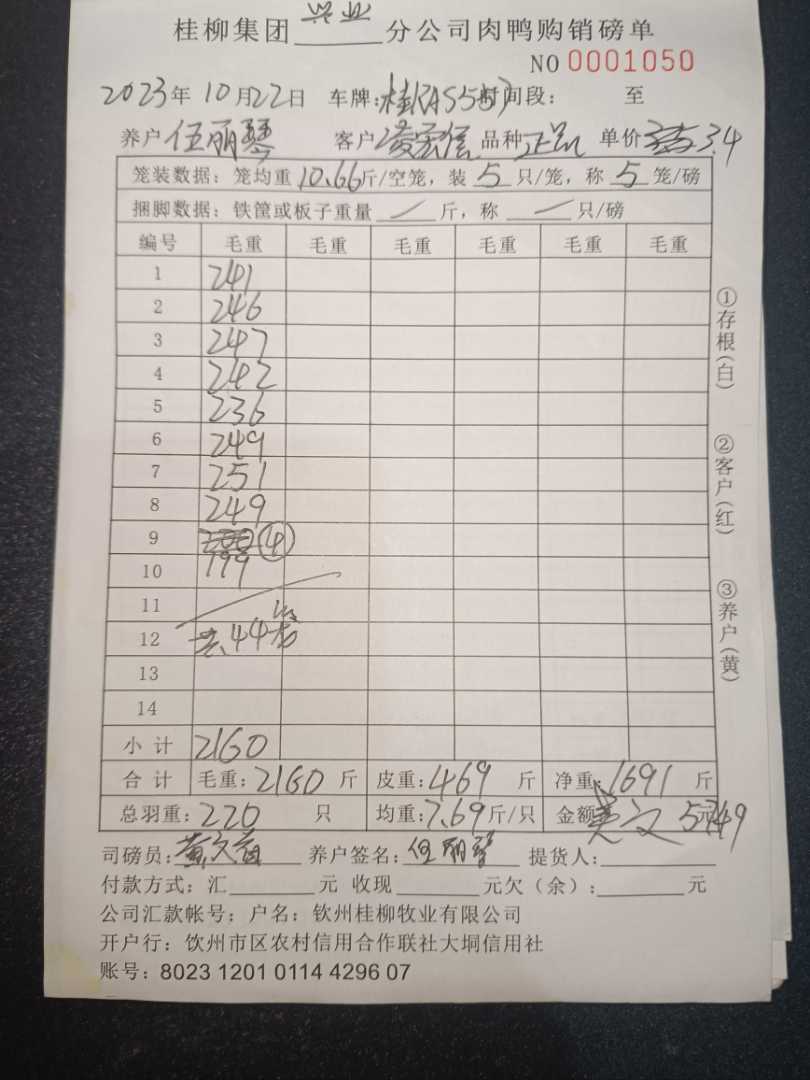 桂柳集团 兴业 分公司肉鸭购销磅单
NO 0001050
2023年 10月22日 车牌: 时间段: 至
养户 伍丽琴 客户 凌宏信 品种 正品 单价 3.4
笼装数据: 笼均重 10.66 斤/空笼, 装 5 只/笼, 称 5 笼/磅
捆脚数据: 铁筐或板子重量 / 斤, 称 / 只/磅
编号 毛重 毛重 毛重 毛重 毛重 毛重
1 241
2 246
3 247
4 242
5 236
6 249
7 251
8 249
9 ④
10 199
11
12 共44笼
13
14
小计 2160
合计 毛重: 2160 斤 皮重: 469 斤 净重: 1691 斤
总羽重: 220 只 均重: 7.69 斤/只 金额: 5749 元
司磅员: 养户签名: 伍丽琴 提货人:
付款方式: 汇 元 收现 元欠(余): 元
公司汇款帐号: 户名: 钦州桂柳牧业有限公司
开户行: 钦州市区农村信用合作联社大垌信用社
账号: 8023 1201 0114 4296 07
①存根(白)
②客户(红)
③养户(黄)